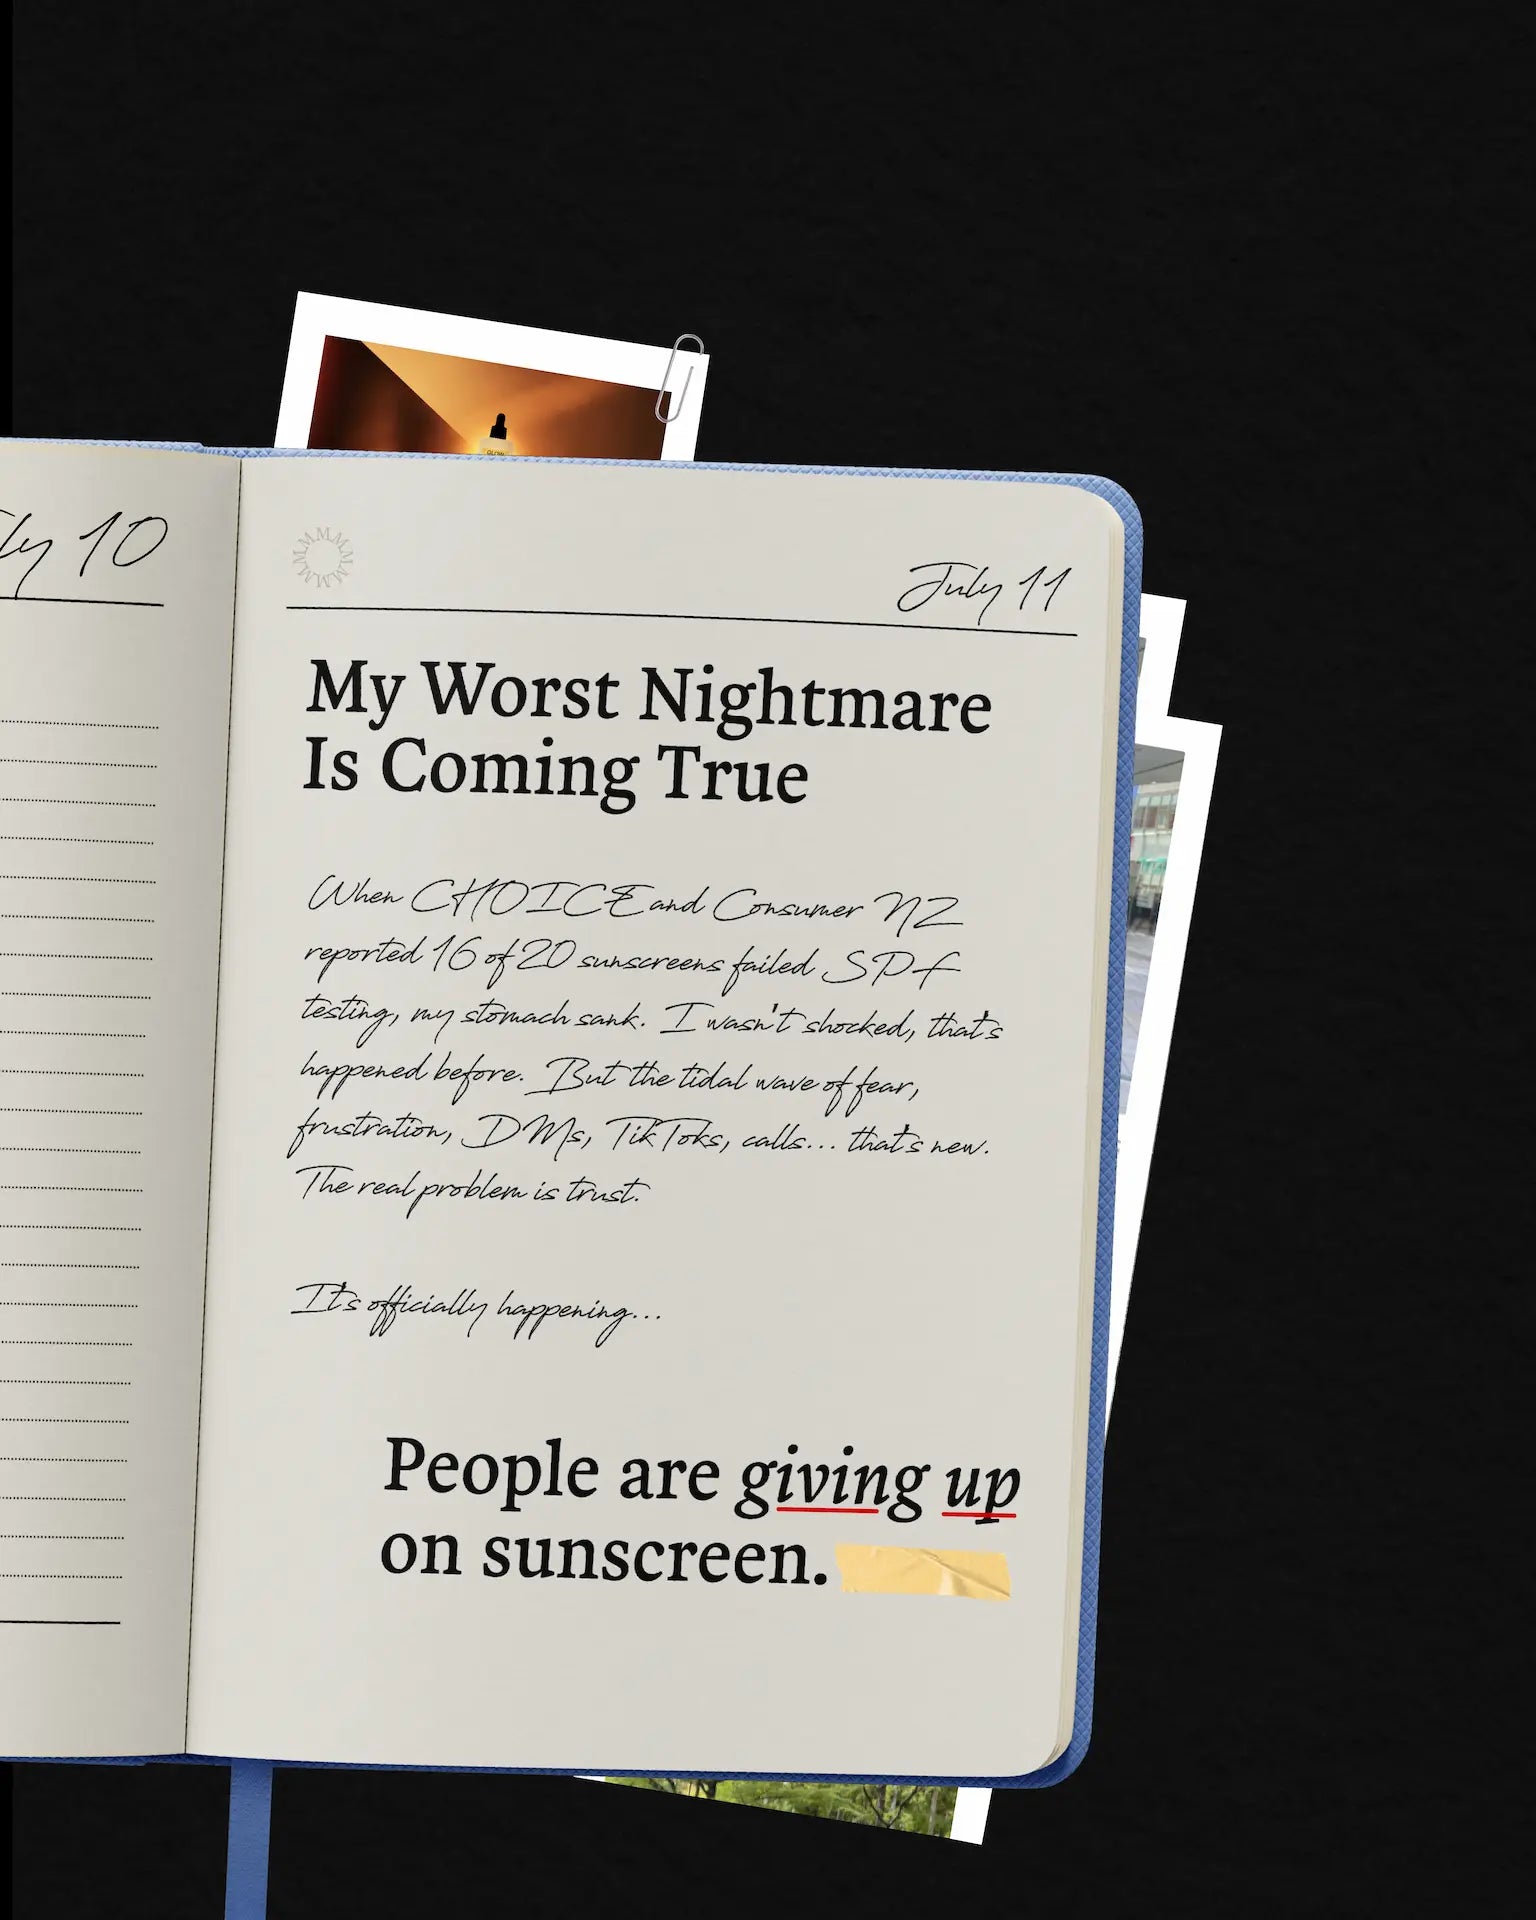 GLOW
ly 10
MMMMMMMMMMMM
July 11
My Worst Nightmare
Is Coming True
When CHOICE and Consumer NZ
reported 16 of 20 sunscreens failed SPF
testing, my stomach sank. I wasn't shocked, that's
happened before. But the tidal wave of fear,
frustration, DMs, TikToks, calls... that's new.
The real problem is trust.
It's officially happening...
People are giving up
on sunscreen.